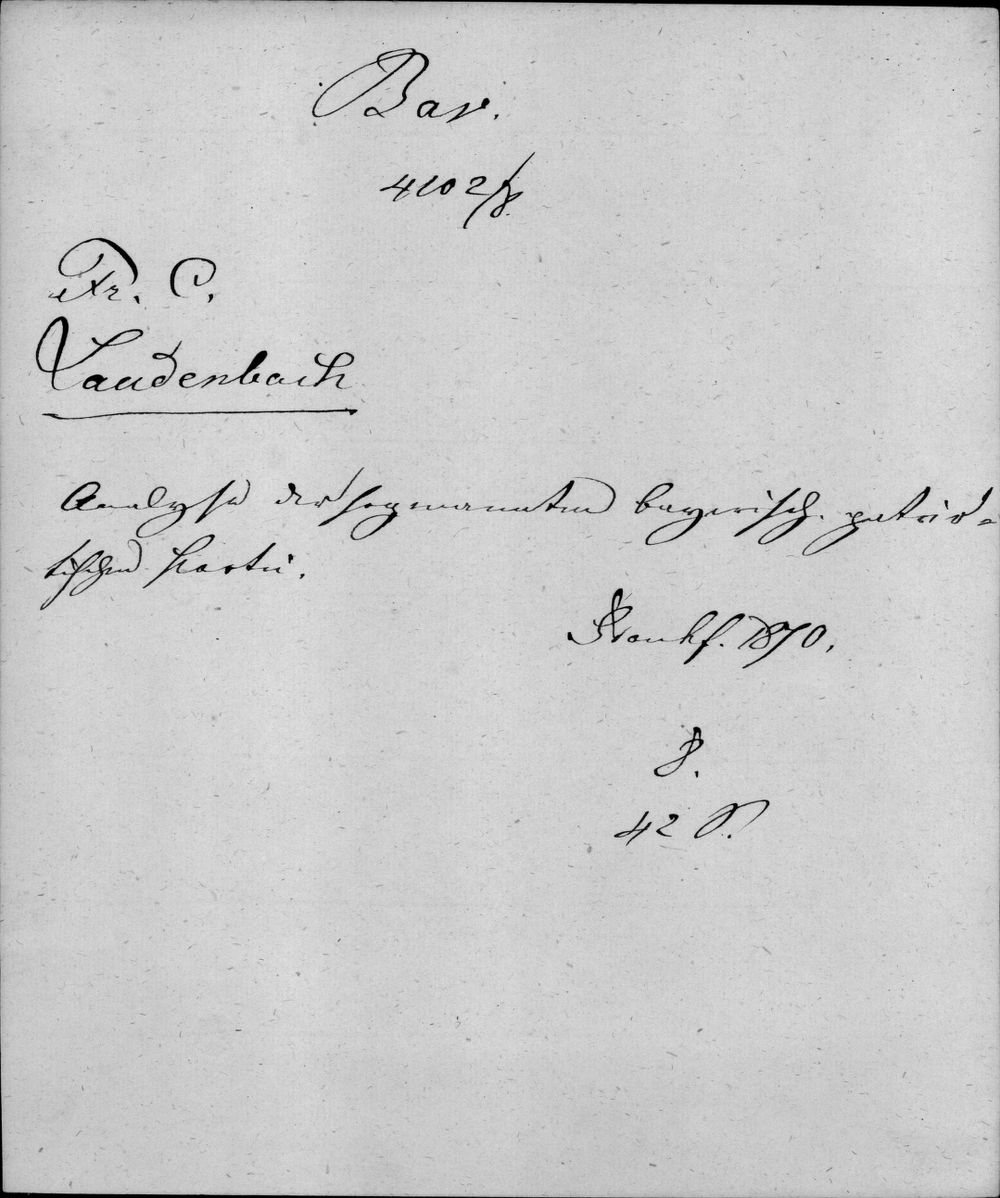 Bav.
4102/8.
Fr. C.
Laudenbach
Analyse der sogenannten bayerisch. patrio-
tischen Partei.
Frankf. 1870.
8.
42 S.